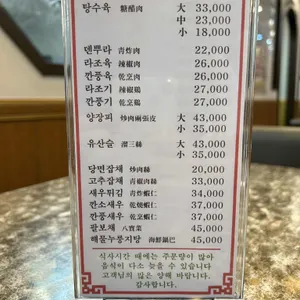 탕수육 糖醋肉 大 33,000
中 23,000
小 18,000
덴뿌라 青炸肉 22,000
라조육 辣椒肉 26,000
깐풍육 乾烹肉 26,000
라조기 辣椒鷄 27,000
깐풍기 乾烹鷄 27,000
양장피 炒肉兩張皮 大 43,000
小 35,000
유산슬 溜三絲 大 43,000
小 35,000
당면잡채 炒肉絲 20,000
고추잡채 青椒肉絲 33,000
새우튀김 青炸蝦仁 34,000
깐소새우 乾燒蝦仁 37,000
깐풍새우 乾烹蝦仁 37,000
팔보채 八寶菜 45,000
해물누룽지탕 海鮮鍋巴 45,000
식사시간 때에는 주문량이 많아
음식이 다소 늦을 수 있습니다
고객님의 많은 양해 바랍니다.
감사합니다.